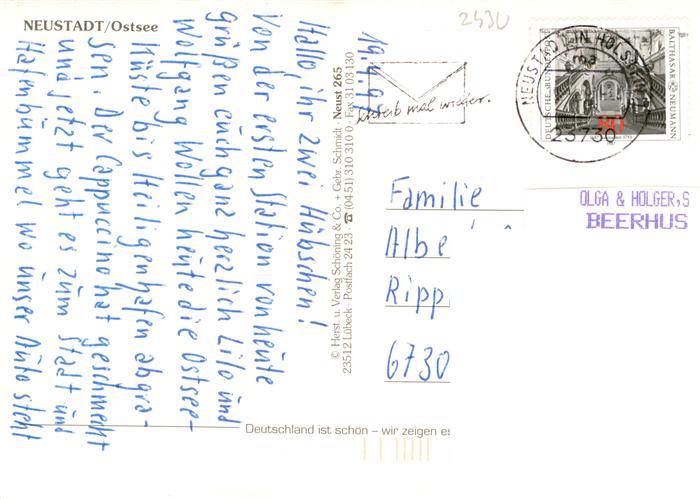 NEUSTADT/Ostsee
Hallo ihr zwei Hübschen!
Von der ersten Station von heute
grüßen euch ganz herzlich Lilo und
Wolfgang. Wollen heute die Ostsee-
Küste bis Heiligenhafen abgra-
sen. Der Cappuccino hat geschmeckt
und jetzt geht es zum Stadt und
Hafenbummel wo unser Auto steht
© Herst. u. Verlag Schöning & Co. + Gebr. Schmidt Neust 265
23512 Lübeck · Postfach 24 23 ☎ (04 51) 310 310 0 · Fax 31 03 130
Deutschland ist schön – wir zeigen es
2430
schreib mal wieder.
NEUSTADT IN HOLSTEIN
23730
DEUTSCHE BUNDESPOST
BALTHASAR NEUMANN
80
Familie
Albe
Ripp
6730
OLGA & HOLGER,S
BEERHUS